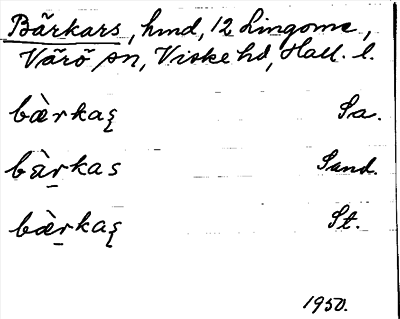 Bãrkars, hmd, 12 Lingome,
Värö sn, Viske hd, Hall. l.
bàrkaʂ Sa.
bàrkas Sand.
bæ̀rkaʂ St.
1950.